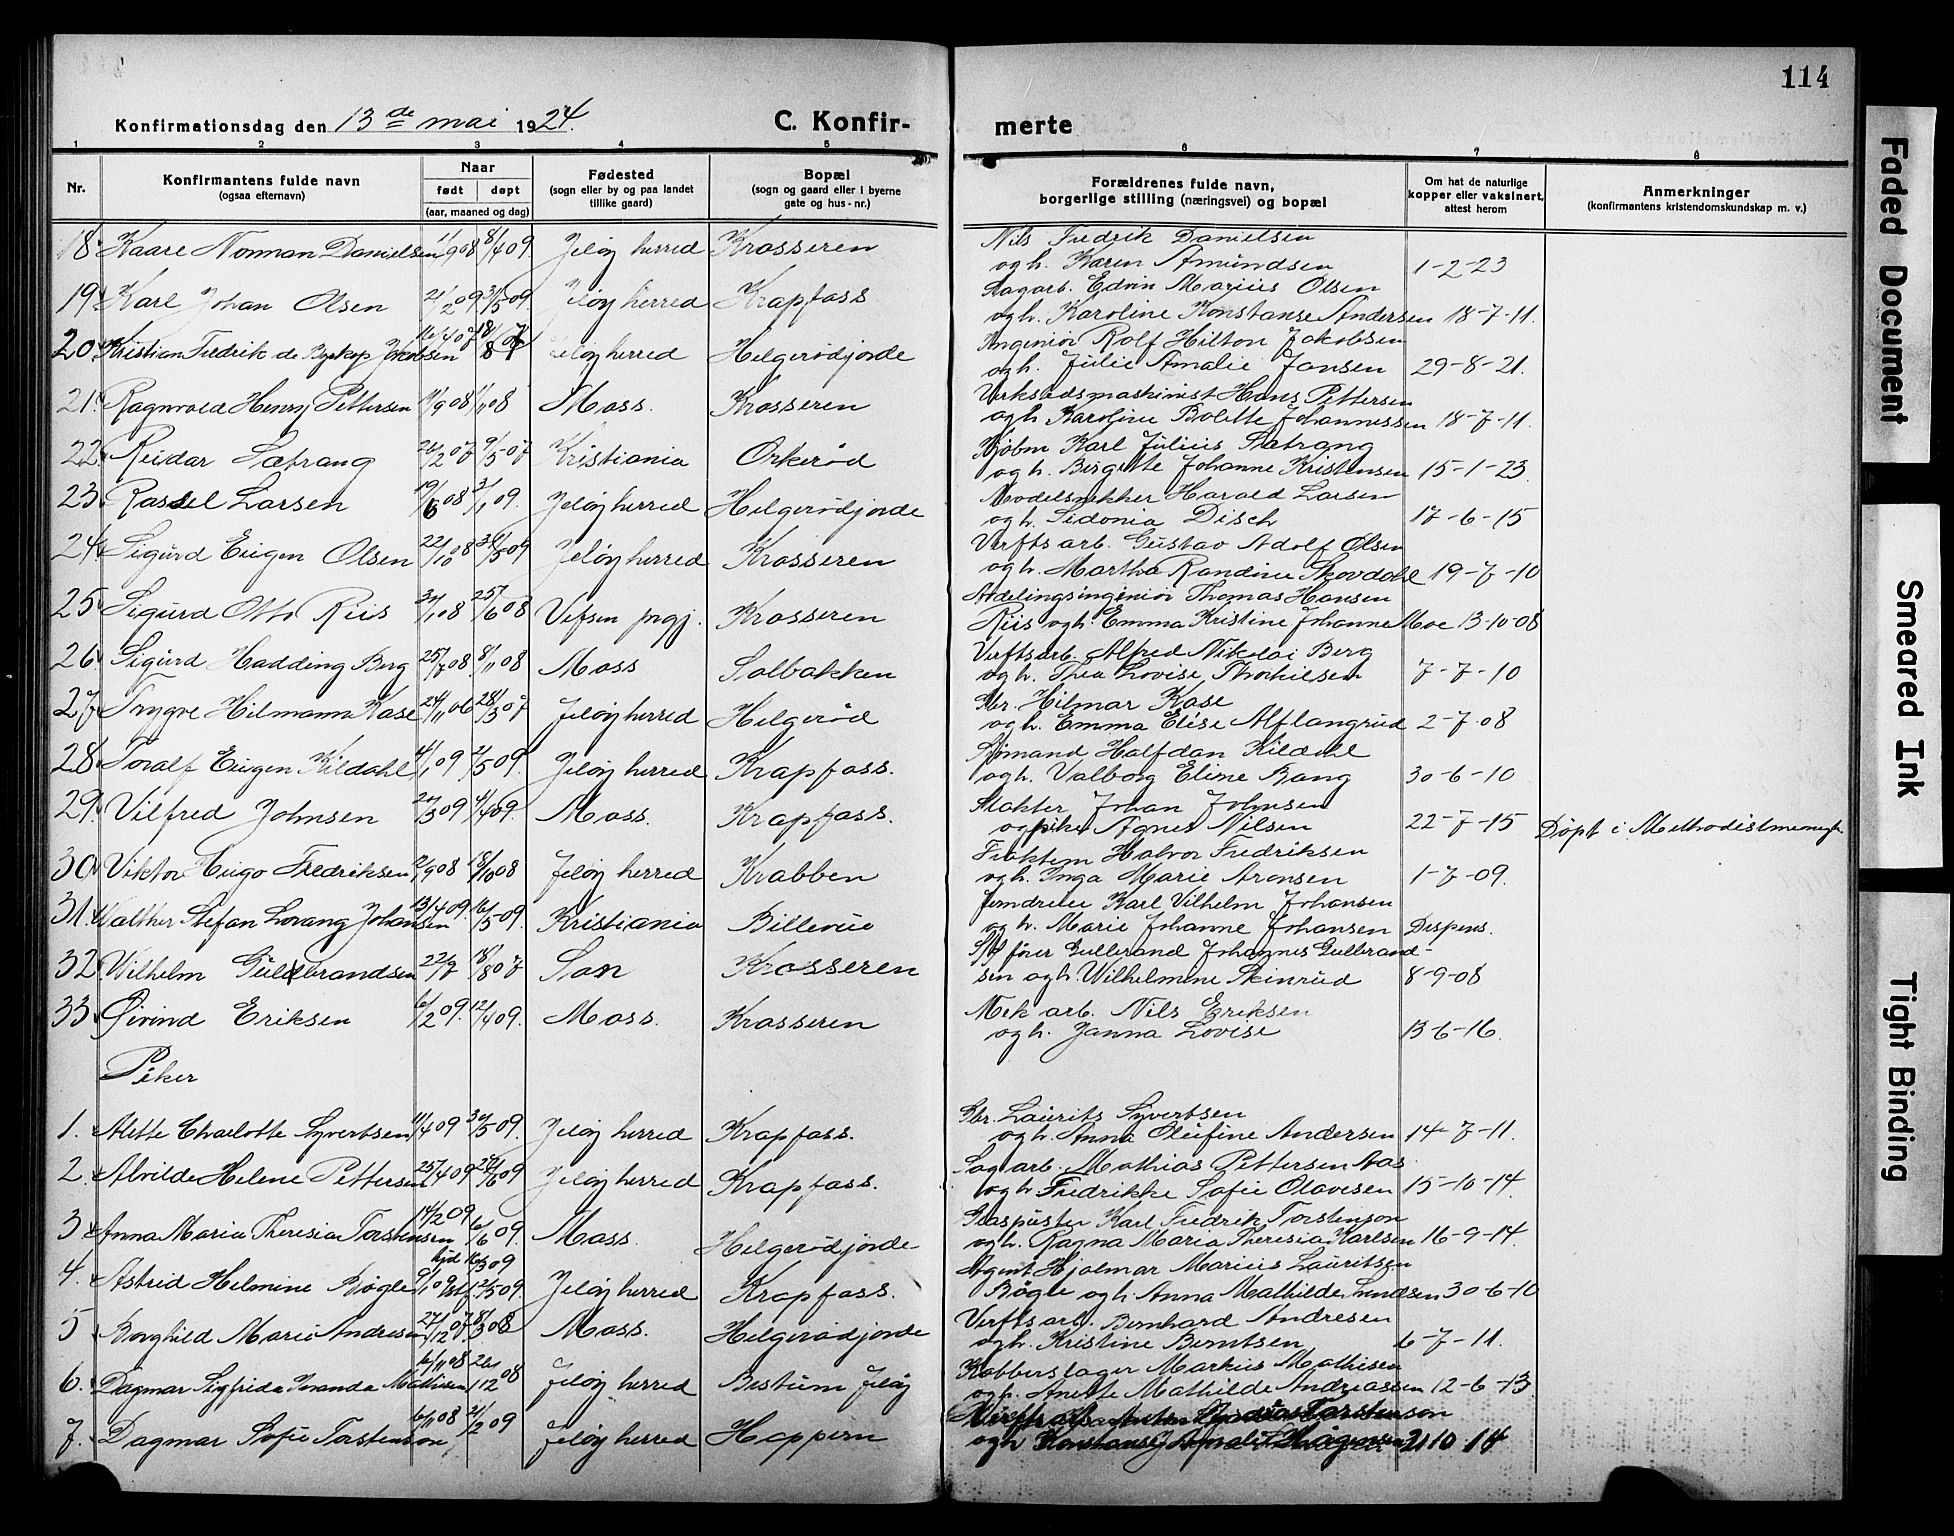 114
Konfirmationsdag den 13de mai 1924.
C. Konfirmerte
1 2 3 4 5 6 7 8
Nr.
Konfirmantens fulde navn
(ogsaa efternavn)
Naar
født døpt
(aar, maaned og dag)
Fødested
(sogn eller by og paa landet
tillike gaard)
Bopæl
(sogn og gaard eller i byerne
gate og hus-nr.)
Forældrenes fulde navn,
borgerlige stilling (næringsvei) og bopæl
Om hat de naturlige
kopper eller vaksinert,
attest herom
Anmerkninger
(konfirmantens kristendomskundskap m. v.)
18. Kaare Norman Danielsen 1/9 08 8/4 09. Jeløy herred Krosseren Nils Fredrik Danielsen
og h. Karen Amundsen 1-2-23
19. Karl Johan Olsen 21/2 09 31/5 09 Jeløy herred Krapfoss Sagarb. Edvin Marius Olsen
og h. Karoline Konstanse Andersen 18-7-11.
20. Kristian Fredrik de Jakobsen 16/4 07 18/8 07 Jeløy herred Helgerødjorde Ingeniør Rolf Hilton Jakobsen
og h. Julie Amalie Jansen 29-8-21.
21. Ragnvald Henry Pettersen 11/9 08 1/11 08 Moss. Krosseren Verkstedsmaskinist Hans Pettersen
og h. Karoline Bolette Johannessen 18-7-11.
22. Reidar Sætrang 26/2 07 9/5 07 Kristiania Orkerød Kjøbm Karl Julius Sætrang
og h. Birgitte Johanne Kristensen 15-1-23.
23. Larsen 19/6 08 3/1 09. Jeløy herred Helgerødjorde Modelsnekker Harald Larsen
og h. Sidonia Disch 17-6-15
24. Sigurd Eugen Olsen 22/10 08 31/5 09 Jeløy herred Krosseren Verftsarb. Gustav Adolf Olsen
og h. Martha Randine Skovdahl 19-7-10
25. Sigurd Otto Riis 1 08 25/6 08 Vefsen prgj. Krosseren Avdelingsingeniør Thomas Hansen
Riis og h. Emma Kristine Johanne Moe 13-10-08
26. Sigurd Hadding Berg 25/7 08 8/11 08 Moss Solbakken Verftsarb. Alfred Nikolai Berg
og h. Thea Lovise Thorkilsen 7-7-10
27. Trygve Hilmann Kase 24/11 06 28/3 07 Jeløy herred Helgerød Hilmar Kase
og h. Emma Elise Alflangrud 2-7-08
28. Toralf Eugen Kildahl 4/1 09 2/5 09. Jeløy herred Krapfoss. Sjømand Halfdan Kildahl
og h. Valborg Eline Bang 30-6-10
29. Vilfred Johnsen 3 09 4/4 09. Moss. Krapfoss. Slakter Johan Johnsen
og pike Agnes Nilsen 22-7-15 Døpt i Methodistmenigh.
30. Viktor Hugo Fredriksen 2/9 08 18/10 08 Jeløy herred Krabben Halvor Fredriksen
og h. Inga Marie Aronsen 1-7-09.
31. Walther Stefan Lovang Johansen 13/4 09. 16/5 09. Kristiania Billevue Karl Vilhelm Johansen
og h. Marie Johanne Johansen Dispens.
32. Wilhelm Guldbrandsen 22/7 18/8 07 Son Krosseren fører Gulbrand Johannes Gulbrand-
sen og h. Wilhelmine Skinrud 8-9-08
33. Øivind Eriksen 6/2 09. 12/4 09. Moss. Krosseren Mek arb. Nils Eriksen
og h. Janna Lovise 13-6-16.
Piker
1. Alette Charlotte Syvertsen 11/4 09 30/5 09. Jeløy herred Krapfoss. Laurits Syvertsen
og h. Anna Olufine Andersen 14-7-11.
2. Alvilde Helene Pettersen 25/4 09 20/6 09 Jeløy herred Krapfoss. Sagarb. Mathias Pettersen Aas
og h. Fredrikke Sofie Olavesen 15-10-14.
3. Anna Maria Theresia Torstensen 14/2 09 6/6 09. Moss. Helgerødjorde Glaspuster Karl Fredrik Torstenson
og h. Ragna Maria Theresia Karlsen 16-9-14.
4. Astrid Helmine Bøgle 9/1 09 hjd 16/3 09 stf. 12/5 09. Jeløy herred Krapfoss. Agent Hjalmar Marius Lauritsen
Bøgle og h. Anna Mathilde Lundsen 30-6-10
5. Borghild Marie Andresen 27/12 07. 8/3 08 Moss. Helgerødjorde Verftsarb. Bernhard Andresen
og h. Kristine Berntsen 6-7-11.
6. Dagmar Sigfrida Mathisen 6/11 08 26/12 08 Jeløy herred Bestum Jeløy Kobberslager Markus Mathisen
og h. Anette Mathilde Andreassen 12-6-13
7. Dagmar Sofie Torstenson 6/11 08 21/2 09 Jeløy herred Hoppern Torstenson
og h 21 10 14
Faded Document
Smeared Ink
Tight Binding